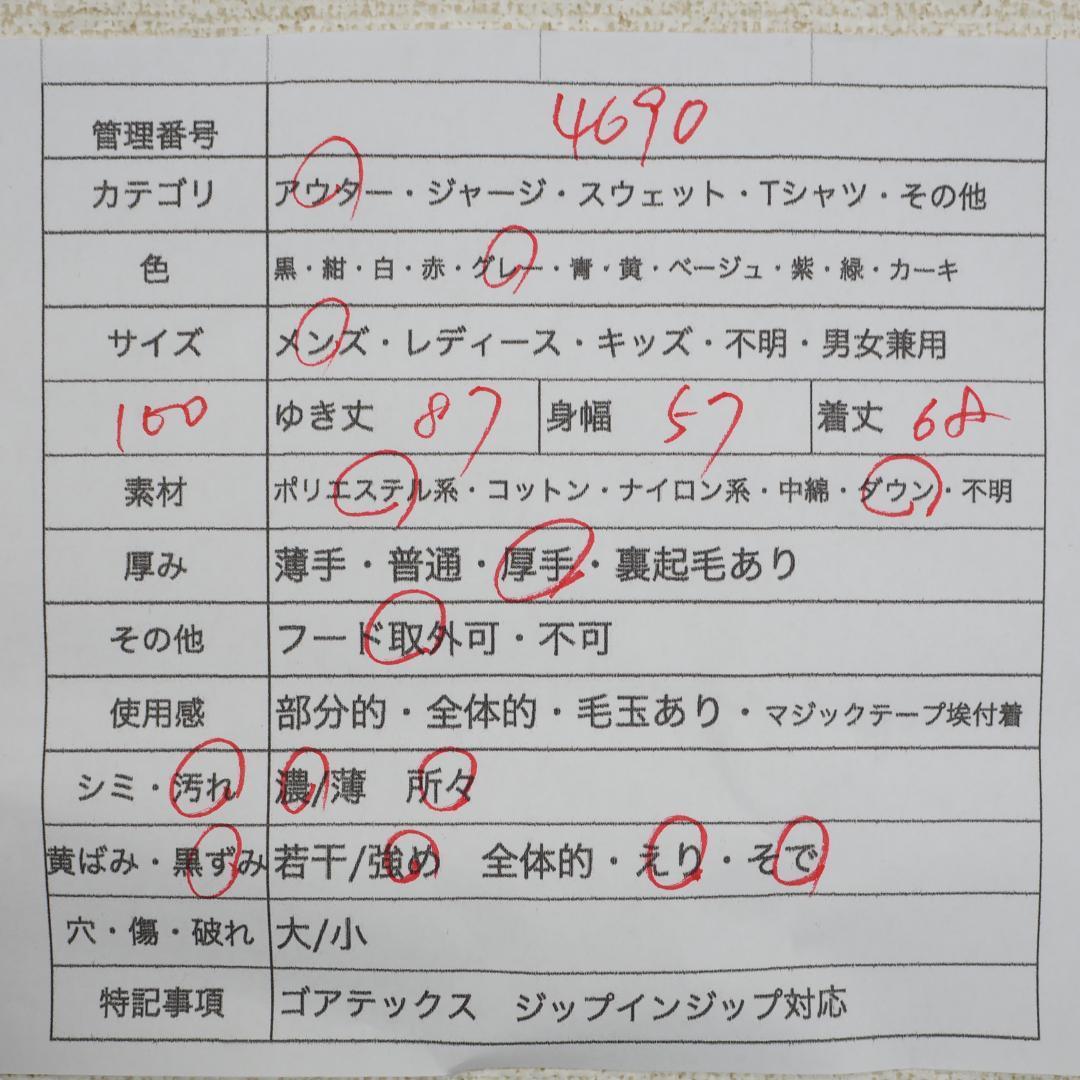 管理番号 4690
カテゴリ アウター・ジャージ・スウェット・Tシャツ・その他
色 黒・紺・白・赤・グレー・青・黄・ベージュ・紫・緑・カーキ
サイズ メンズ・レディース・キッズ・不明・男女兼用
160 ゆき丈 87 身幅 57 着丈 68
素材 ポリエステル系・コットン・ナイロン系・中綿・ダウン・不明
厚み 薄手・普通・厚手・裏起毛あり
その他 フード取外可・不可
使用感 部分的・全体的・毛玉あり・マジックテープ埃付着
シミ・汚れ 濃/薄 所々
黄ばみ・黒ずみ 若干/強め 全体的・えり・そで
穴・傷・破れ 大/小
特記事項 ゴアテックス ジップインジップ対応